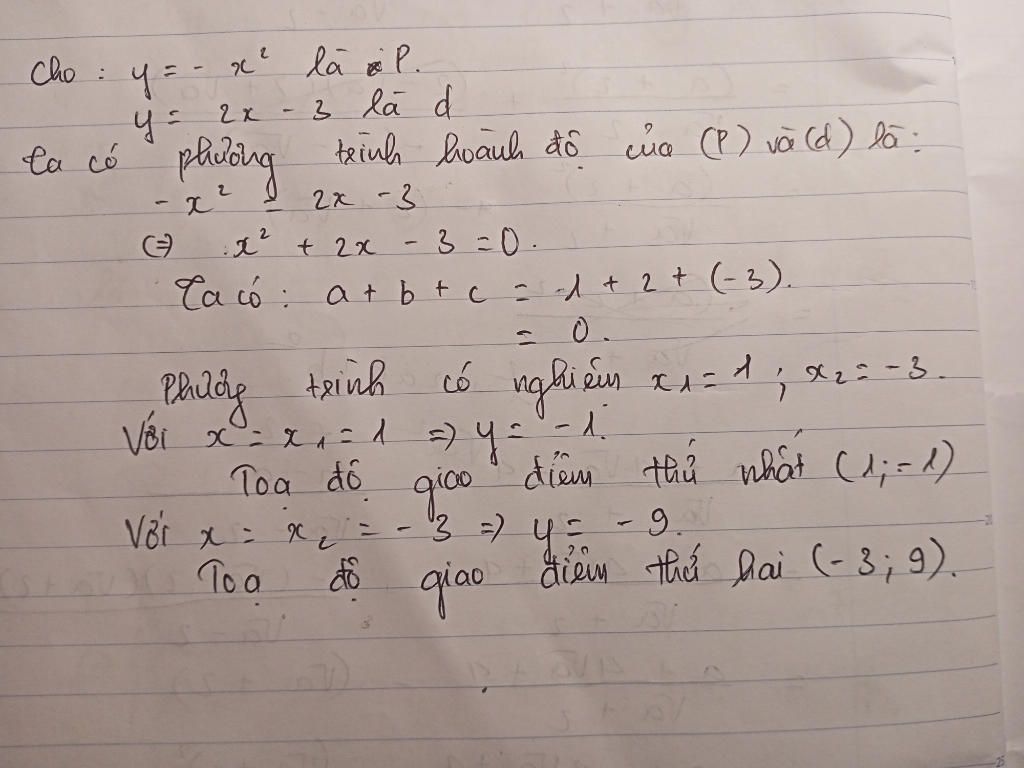 Cho : y = - x² là P.
y = 2x - 3 là d
Ta có phương trình hoành độ của (P) và (d) là:
- x² = 2x - 3
(=) x² + 2x - 3 = 0.
Ta có : a + b + c = 1 + 2 + (-3).
= 0.
Phương trình có nghiệm x₁ = 1 ; x₂ = -3.
Với x = x₁ = 1 => y = -1.
Toạ độ giao điểm thứ nhất (1; -1)
Với x = x₂ = -3 => y = -9.
Toạ độ giao điểm thứ hai (-3; 9).